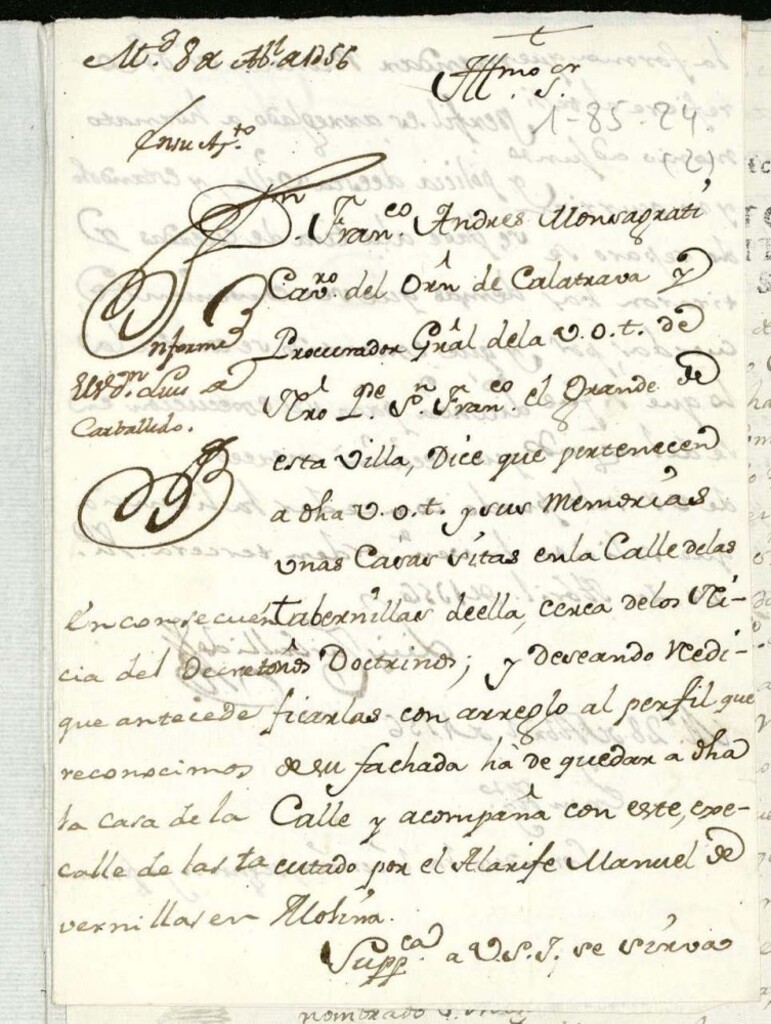 M.d 8 de Ab.l de 1756
Ill.mo S.or
1-85-24
(21)
En su Ay.to
D.n Fran.co Andres Monsagrati
Cav.ro del Orn de Calatrava y
Procurador Gral dela V.O.T. de
Nro P.e S.n Fran.co el Grande de
esta Villa, Dice que pertenecen
a dha V.O.T. y sus Memorias
unas Casas sitas en la Calle delas
Tabernillas de ella, cerca delos Ni-
ños Doctrinos; y deseando Redi-
ficarlas con arreglo al perfil que
de su fachada hà de quedar a dha
Calle y acompaña con este, exe-
cutado por el Alarife Manuel de
Molina.
Supp.ca a V.S.I. se sirva
Informe
el S.r d.n Luis de
Carballido.
En consecuen
cia del Decreto
que antecede
reconocimos
la casa de la
calle de las ta
vernillas en
nombrado